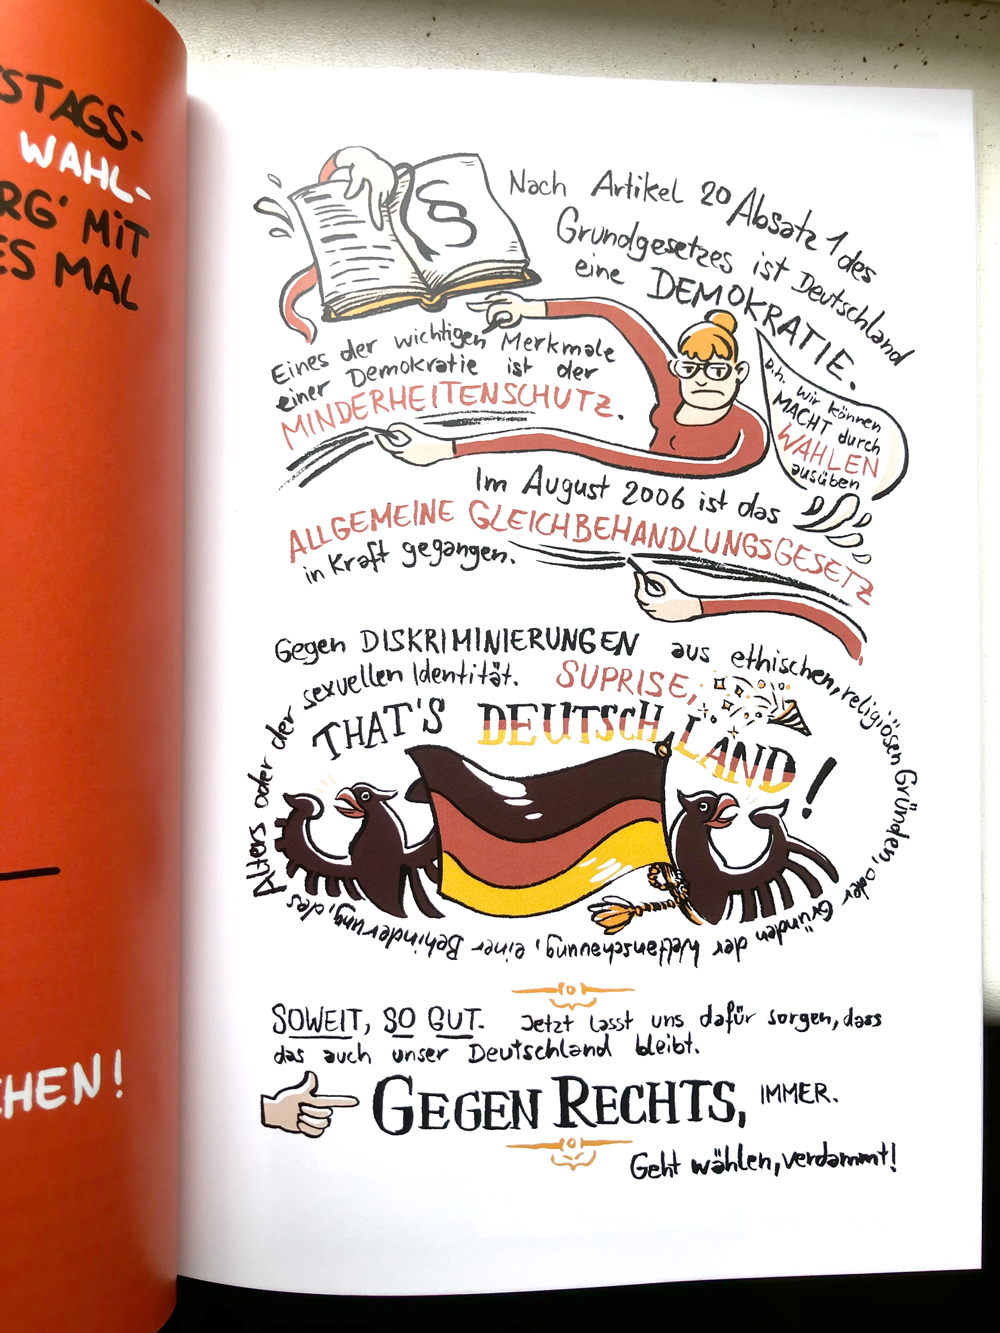 STAGS-
WAHL-
RG' MIT
ES MAL
HEN!
§
Nach Artikel 20 Absatz 1 des
Grundgesetzes ist Deutschland
eine DEMOKRATIE.
d.h. wir können
MACHT durch
WAHLEN
ausüben
Eines der wichtigen Merkmale
einer Demokratie ist der
MINDERHEITENSCHUTZ.
Im August 2006 ist das
ALLGEMEINE GLEICHBEHANDLUNGSGESETZ
in Kraft gegangen.
Gegen DISKRIMINIERUNGEN aus ethischen, religiösen Gründen, oder Gründen der Weltanschennung, einer Behinderung, des Alters oder der
sexuellen Identität.
SUPRISE,
THAT'S DEUTSCHLAND!
SOWEIT, SO GUT. Jetzt lasst uns dafür sorgen, dass
das auch unser Deutschland bleibt.
GEGEN RECHTS, IMMER.
Geht wählen, verdammt!